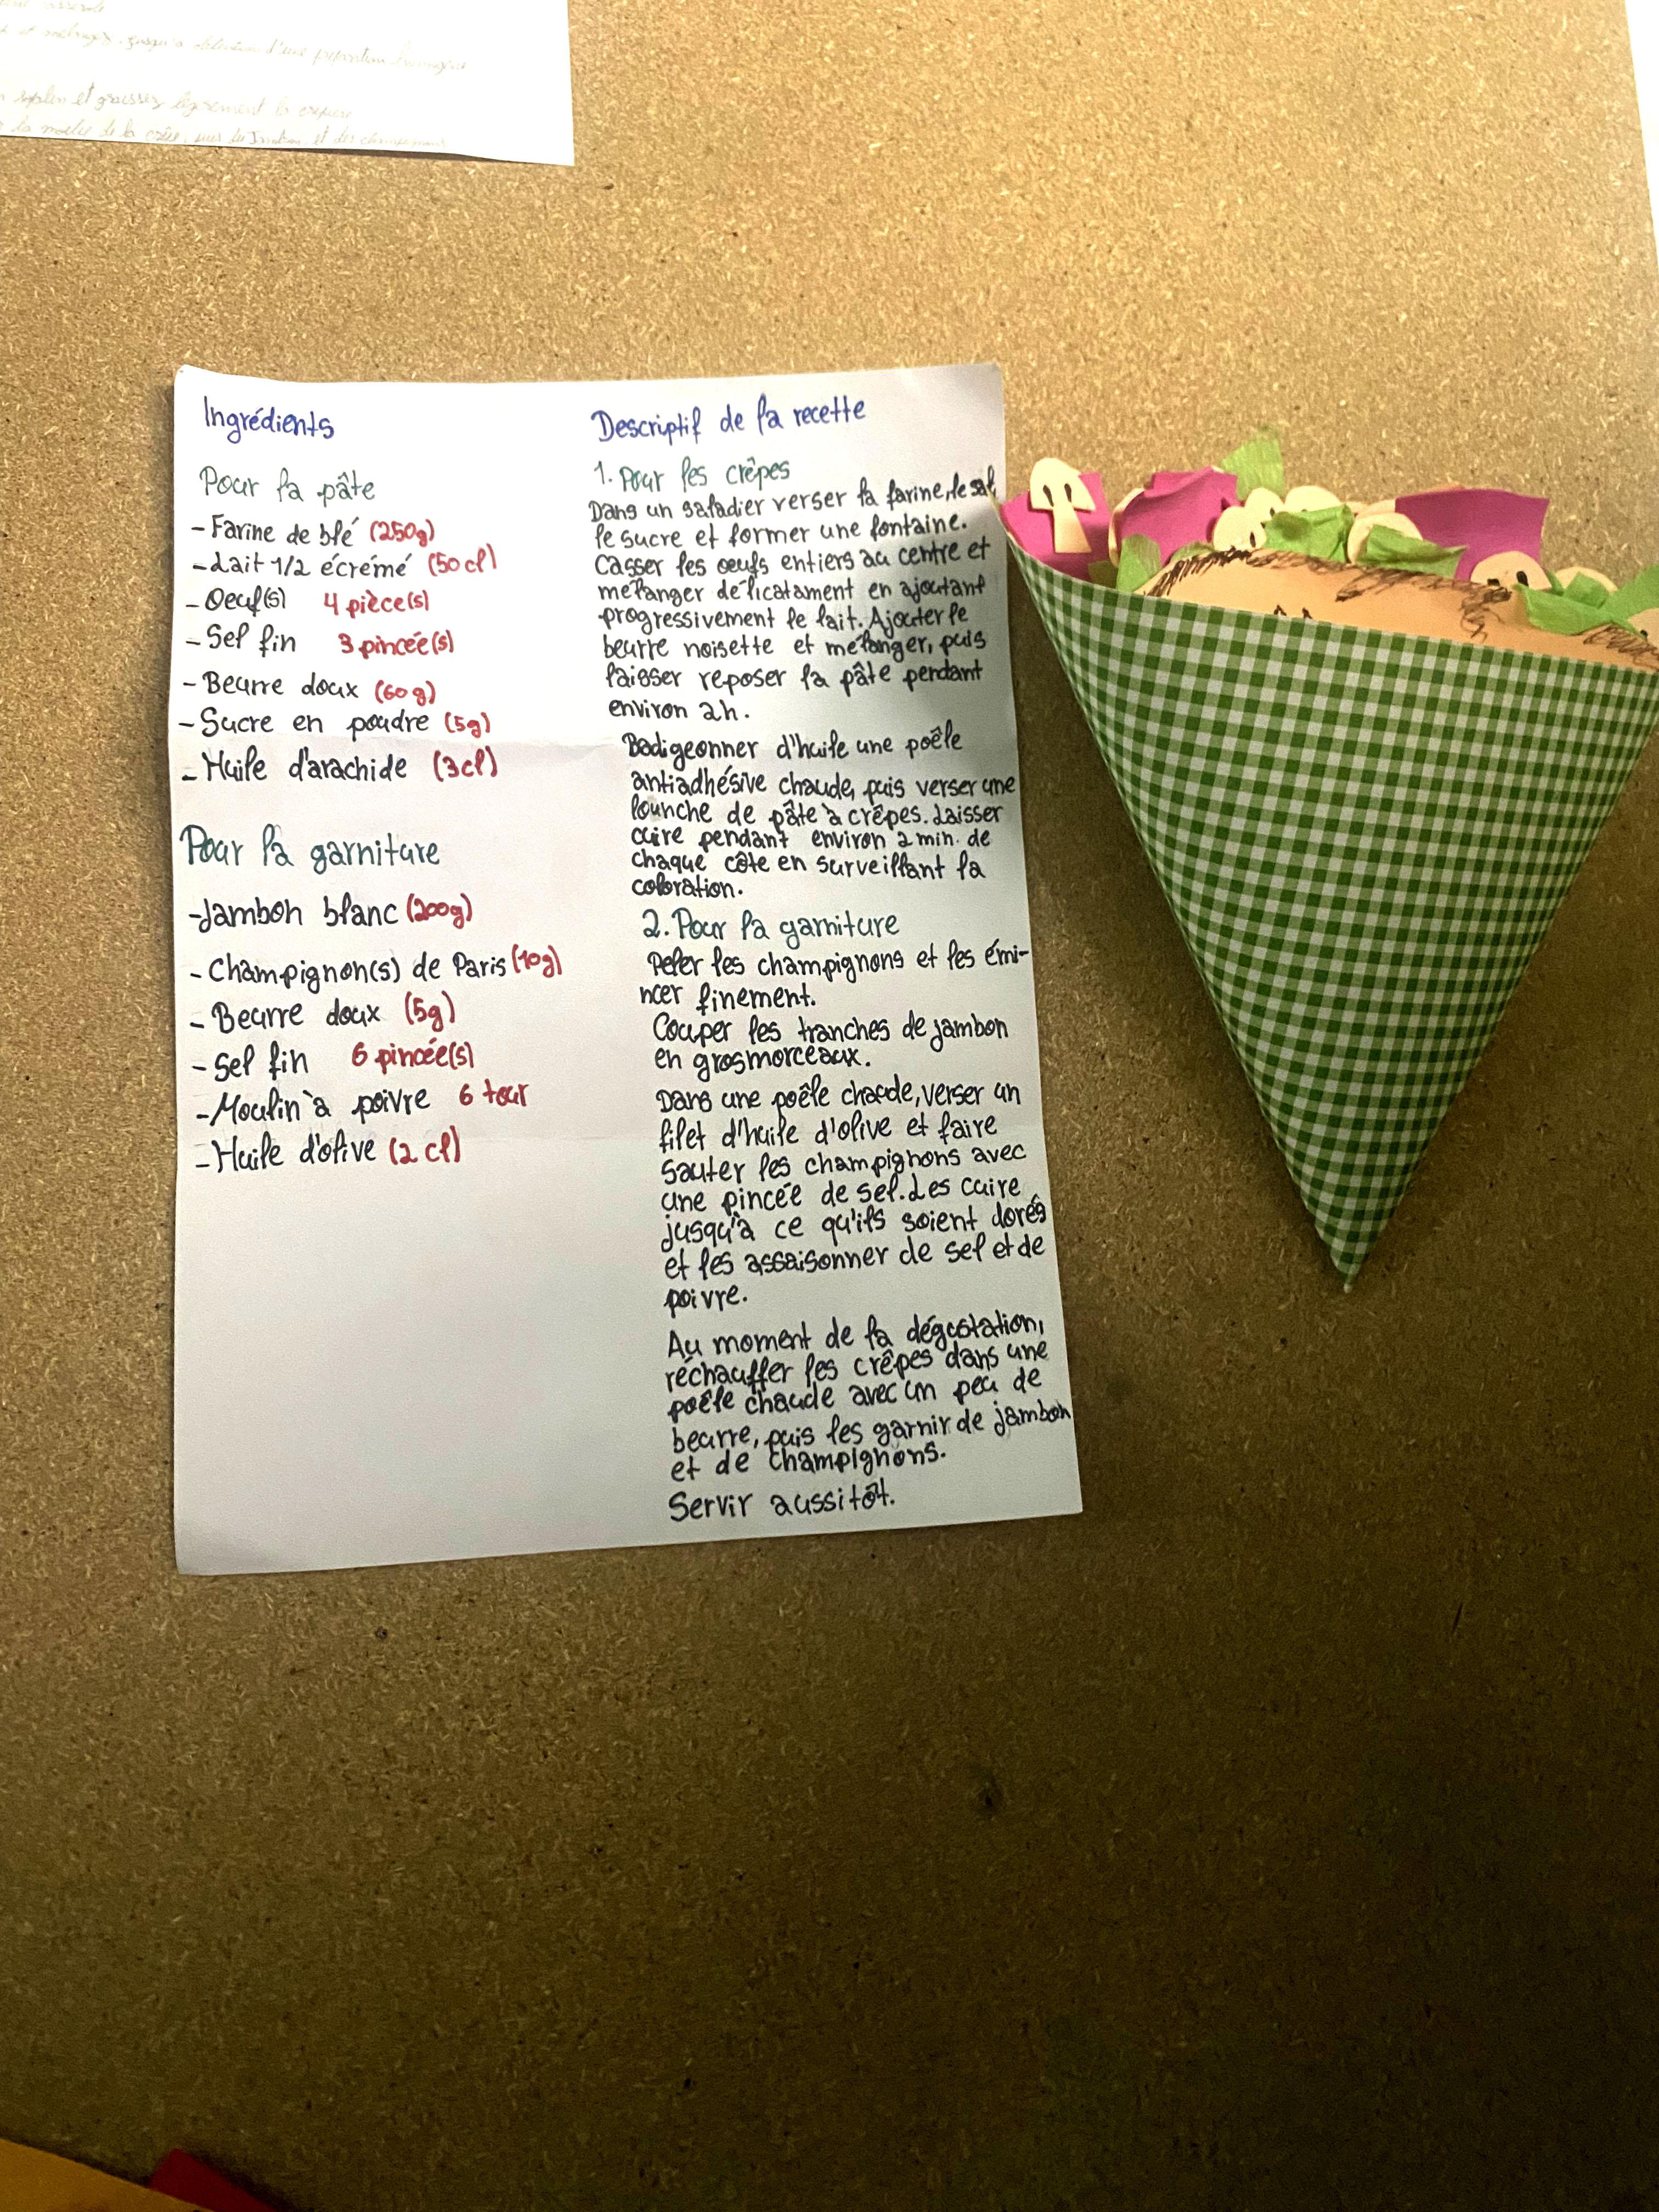 et mélangez jusqu'à obtention d'une
et graissez légèrement la
la moitié de la
Ingrédients
Pour la pâte
- Farine de blé (250g)
- Lait 1/2 écrémé (50 cl)
- Oeuf(s) 4 pièce(s)
- Sel fin 3 pincée(s)
- Beurre doux (60g)
- Sucre en poudre (5g)
- Huile d'arachide (3cl)
Pour la garniture
- Jambon blanc (200g)
- Champignon(s) de Paris (10g)
- Beurre doux (5g)
- Sel fin 6 pincée(s)
- Moulin à poivre 6 tour
- Huile d'olive (2 cl)
Descriptif de la recette
1. Pour les crêpes
Dans un saladier verser la farine, le sel,
le sucre et former une fontaine.
Casser les oeufs entiers au centre et
mélanger délicatament en ajoutant
progressivement le lait. Ajouter le
beurre noisette et mélanger, puis
laisser reposer la pâte pendant
environ 2h.
Badigeonner d'huile une poêle
antiadhésive chaude, puis verser une
lounche de pâte à crêpes. Laisser
cuire pendant environ 2 min. de
chaque côte en surveillant la
coloration.
2. Pour la garniture
Peler les champignons et les émi-
ncer finement.
Couper les tranches de jambon
en grosmorceaux.
Dans une poêle chaude, verser un
filet d'huile d'olive et faire
sauter les champignons avec
une pincée de sel. Les cuire
jusqu'à ce qu'ils soient dorés
et les assaisonner de sel et de
poivre.
Au moment de la dégustation,
réchauffer les crêpes dans une
poêle chaude avec un peu de
beurre, puis les garnir de jambon
et de champignons.
Servir aussitôt.